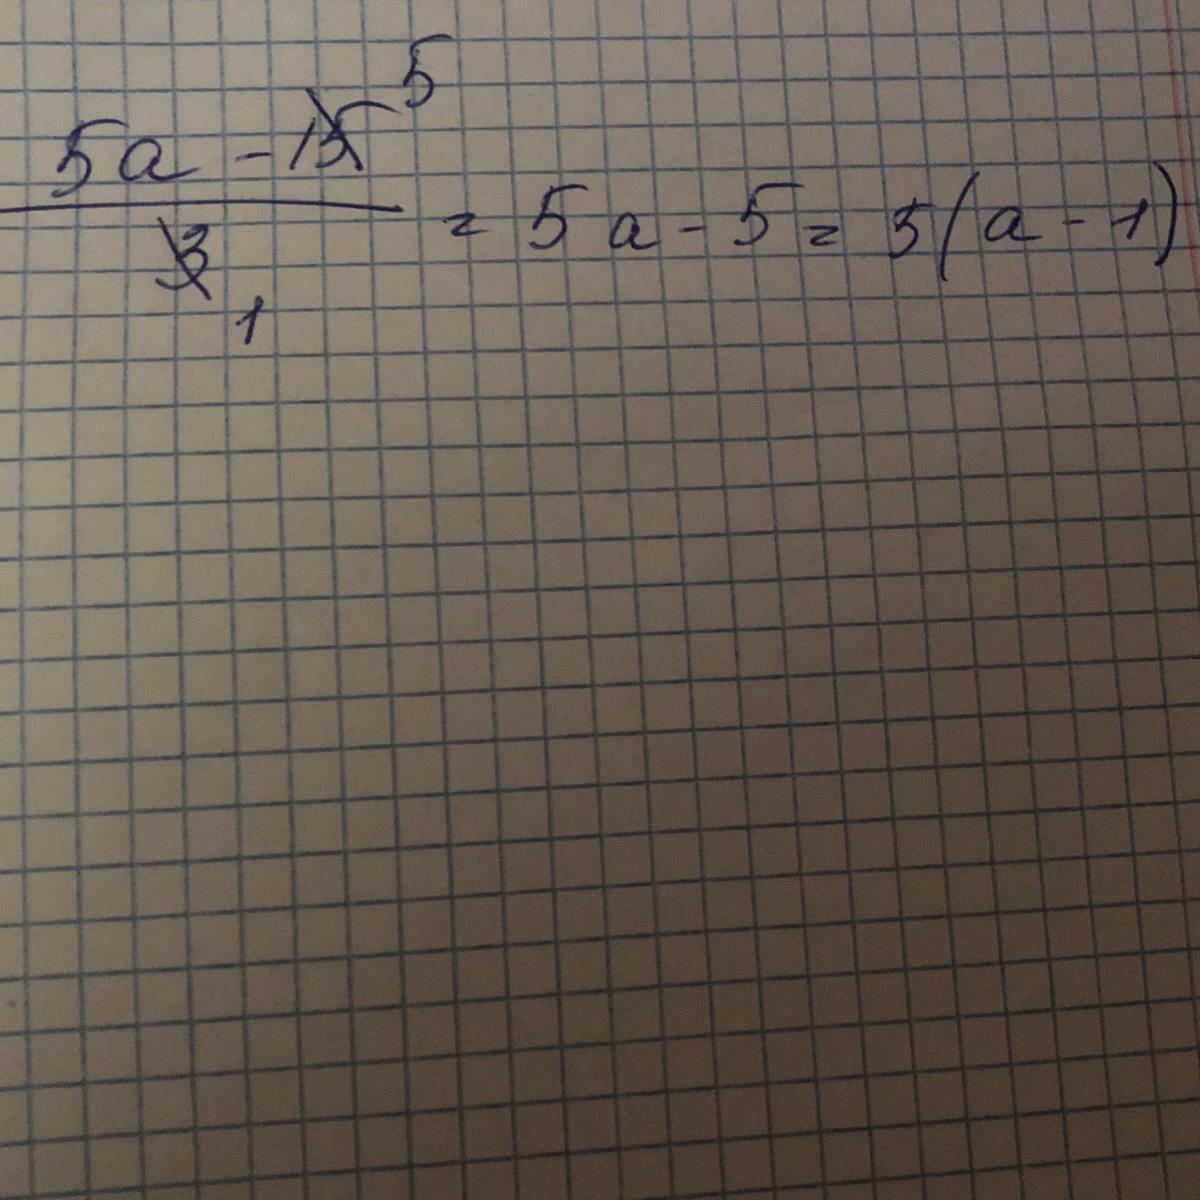 5
5a - 15
3
1
= 5a - 5 = 5(a - 1)